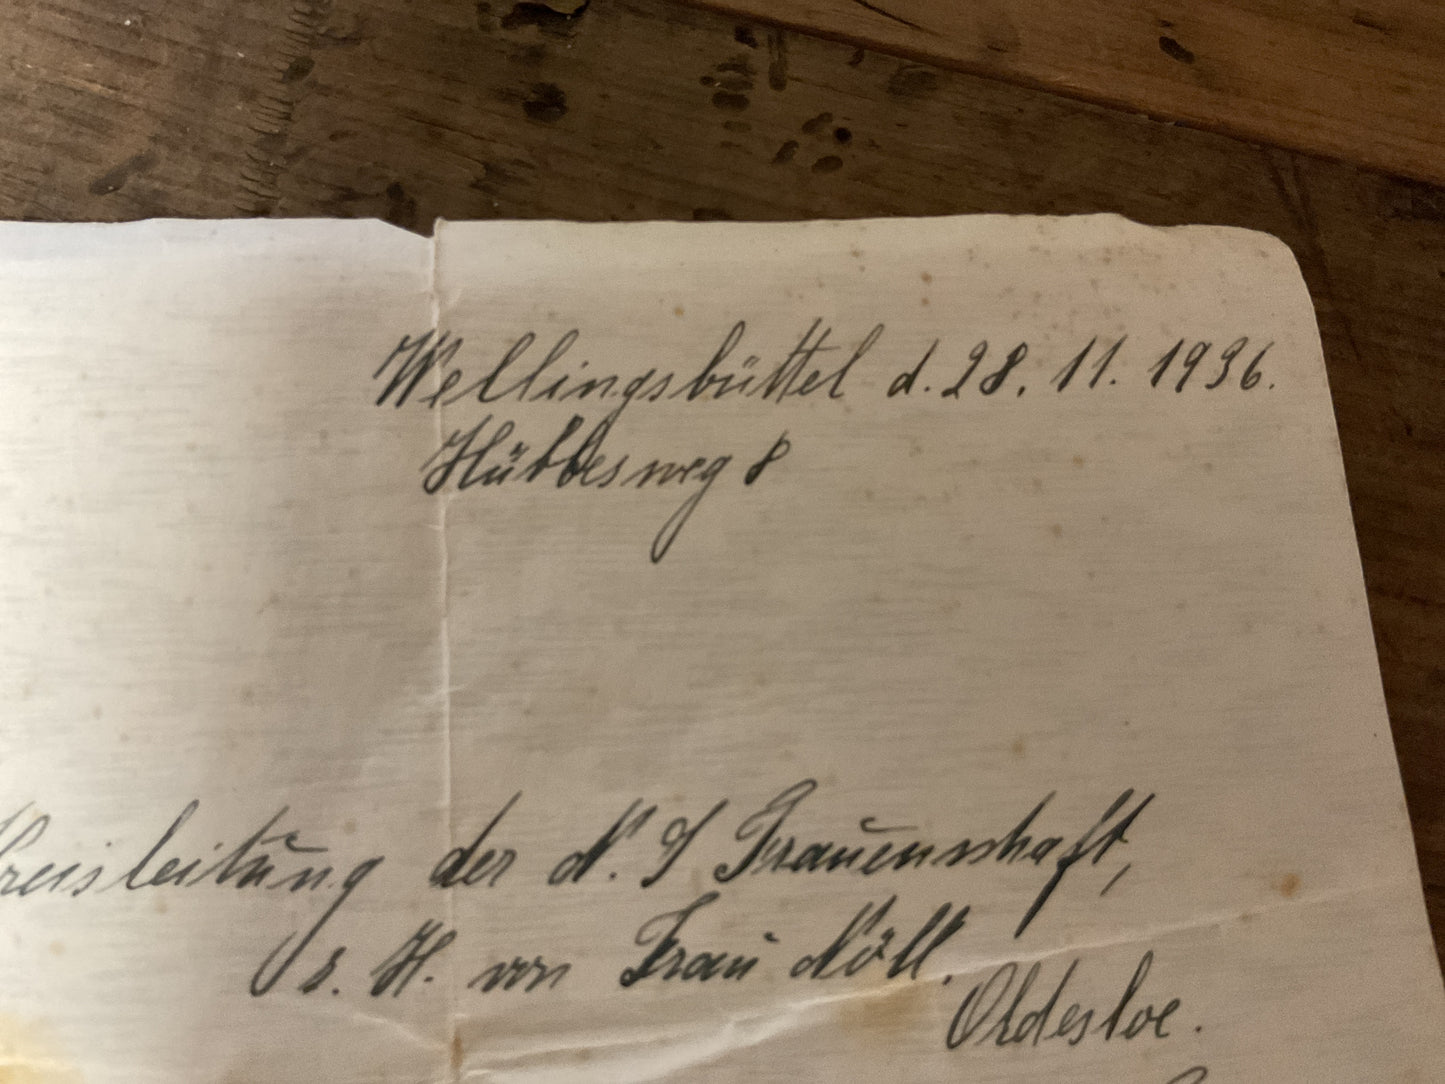 Wellingsbüttel d. 28. 11. 1936.
Hübbesweg 8
Kreisleitung der N. S Frauenschaft,
z. H. von Frau Nöll.
Oldesloe.